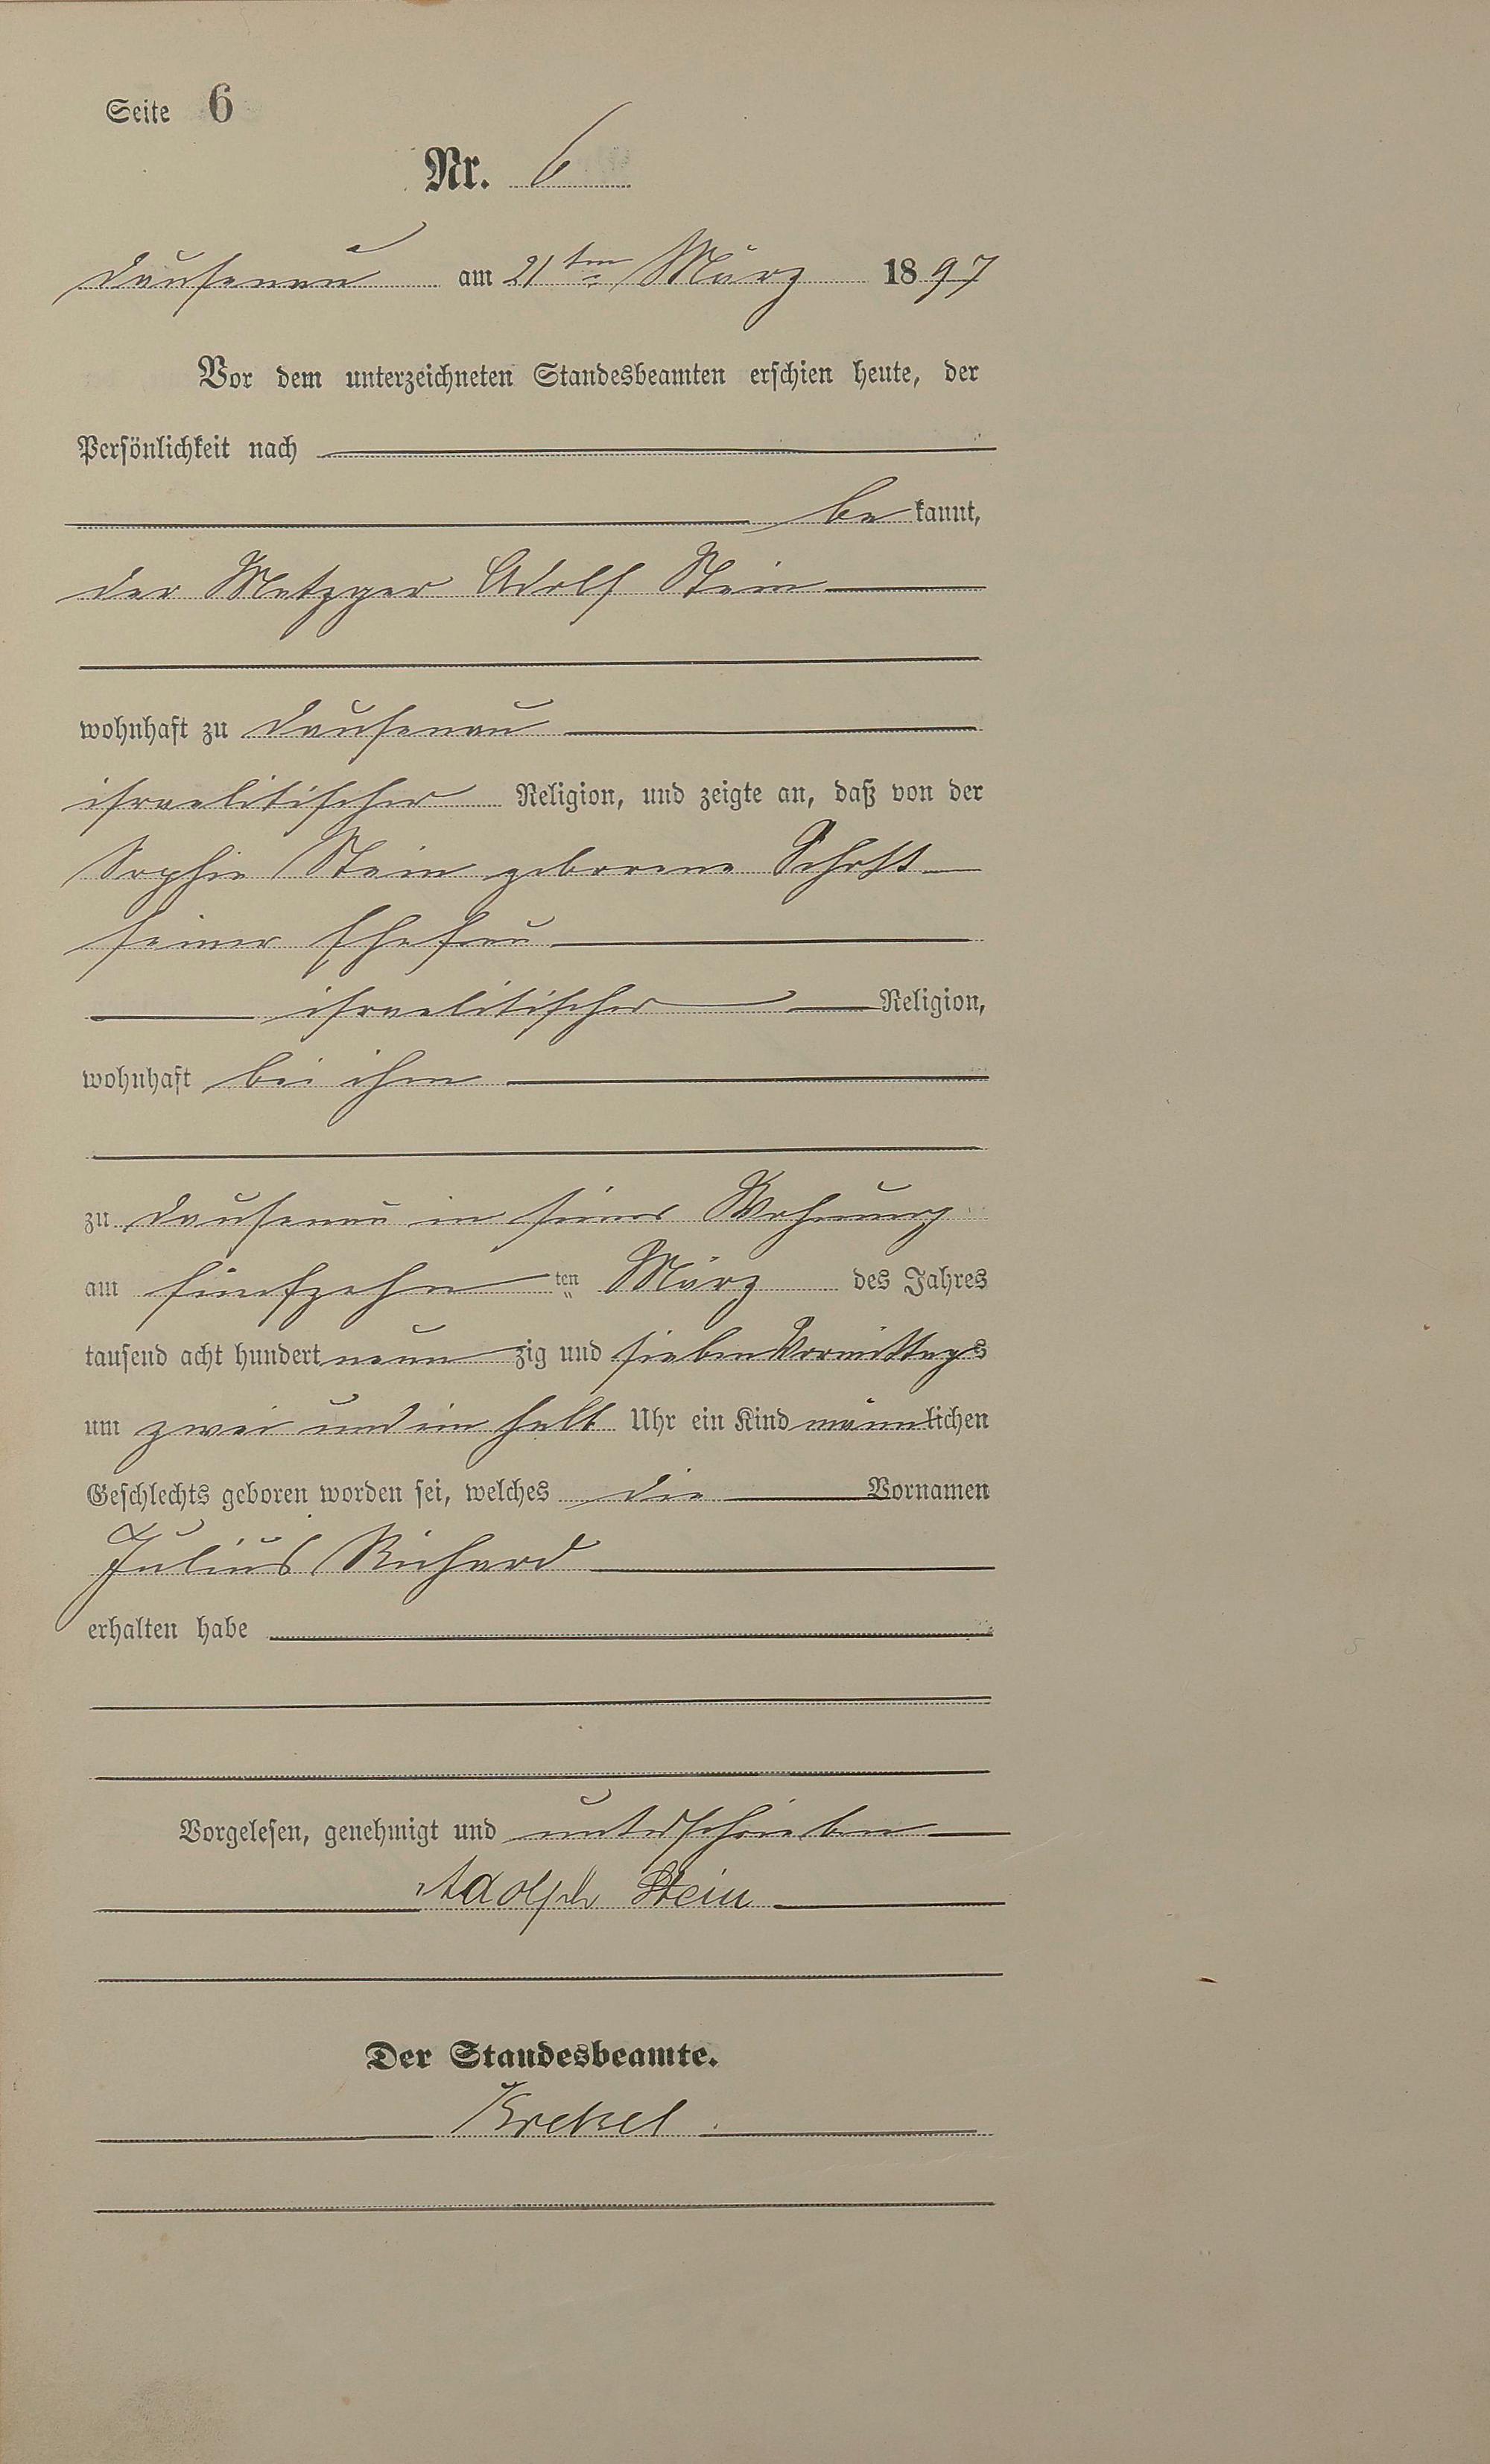 Seite 6
Nr. 6
Dausenau am 21ten März 1897
Vor dem unterzeichneten Standesbeamten erschien heute, der
Persönlichkeit nach
be kannt,
der Metzger Adolf Stein
wohnhaft zu Dausenau
israelitischer Religion, und zeigte an, daß von der
Sophie Stein geborene
seiner Ehefrau
israelitischer Religion,
wohnhaft bei ihm
zu Dausenau in seiner Wohnung
am fünfzehn ten März des Jahres
tausend acht hundert neun zig und sieben Vormittags
um zwei und ein halb Uhr ein Kind männlichen
Geschlechts geboren worden sei, welches die Vornamen
Julius Richard
erhalten habe
Vorgelesen, genehmigt und unterschrieben
Adolph Stein
Der Standesbeamte.